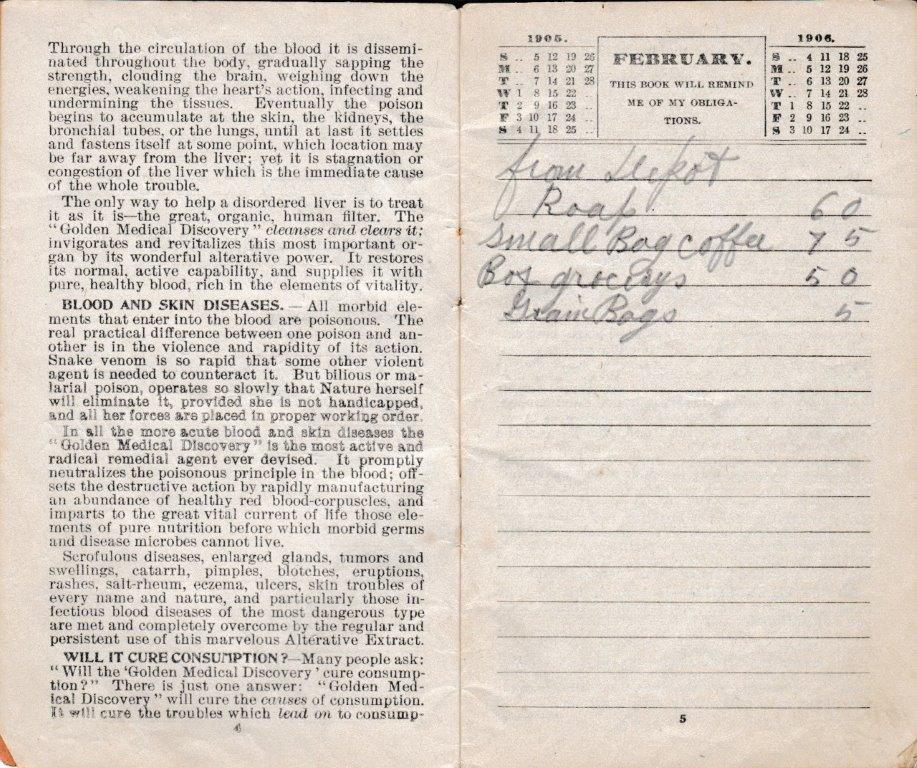 Through the circulation of the blood it is dissemi-
nated throughout the body, gradually sapping the
strength, clouding the brain, weighing down the
energies, weakening the heart's action, infecting and
undermining the tissues. Eventually the poison
begins to accumulate at the skin, the kidneys, the
bronchial tubes, or the lungs, until at last it settles
and fastens itself at some point, which location may
be far away from the liver; yet it is stagnation or
congestion of the liver which is the immediate cause
of the whole trouble.
The only way to help a disordered liver is to treat
it as it is—the great, organic, human filter. The
"Golden Medical Discovery" cleanses and clears it;
invigorates and revitalizes this most important or-
gan by its wonderful alterative power. It restores
its normal, active capability, and supplies it with
pure, healthy blood, rich in the elements of vitality.
BLOOD AND SKIN DISEASES.—All morbid ele-
ments that enter into the blood are poisonous. The
real practical difference between one poison and an-
other is in the violence and rapidity of its action.
Snake venom is so rapid that some other violent
agent is needed to counteract it. But bilious or ma-
larial poison, operates so slowly that Nature herself
will eliminate it, provided she is not handicapped,
and all her forces are placed in proper working order.
In all the more acute blood and skin diseases the
"Golden Medical Discovery" is the most active and
radical remedial agent ever devised. It promptly
neutralizes the poisonous principle in the blood; off-
sets the destructive action by rapidly manufacturing
an abundance of healthy red blood-corpuscles, and
imparts to the great vital current of life those ele-
ments of pure nutrition before which morbid germs
and disease microbes cannot live.
Scrofulous diseases, enlarged glands, tumors and
swellings, catarrh, pimples, blotches, eruptions,
rashes, salt-rheum, eczema, ulcers, skin troubles of
every name and nature, and particularly those in-
fectious blood diseases of the most dangerous type
are met and completely overcome by the regular and
persistent use of this marvelous Alterative Extract.
WILL IT CURE CONSUMPTION?—Many people ask:
"Will the 'Golden Medical Discovery' cure consump-
tion?" There is just one answer: "Golden Med-
ical Discovery" will cure the causes of consumption.
It will cure the troubles which lead on to consump-
4
1905.
S .. 5 12 19 26
M .. 6 13 20 27
T .. 7 14 21 28
W 1 8 15 22 ..
T 2 9 16 23 ..
F 3 10 17 24 ..
S 4 11 18 25 ..
FEBRUARY.
THIS BOOK WILL REMIND
ME OF MY OBLIGA-
TIONS.
1906.
S .. 4 11 18 25
M .. 5 12 19 26
T .. 6 13 20 27
W .. 7 14 21 28
T 1 8 15 22 ..
F 2 9 16 23 ..
S 3 10 17 24 ..
from Depot
60
Small Bag coffee 75
Box grocerys 50
Grain Bags 5
5